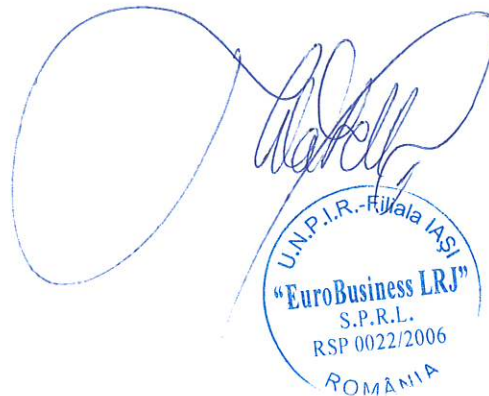 U.N.P.I.R.-Filiala IAȘI
"EuroBusiness LRJ"
S.P.R.L.
RSP 0022/2006
ROMÂNIA